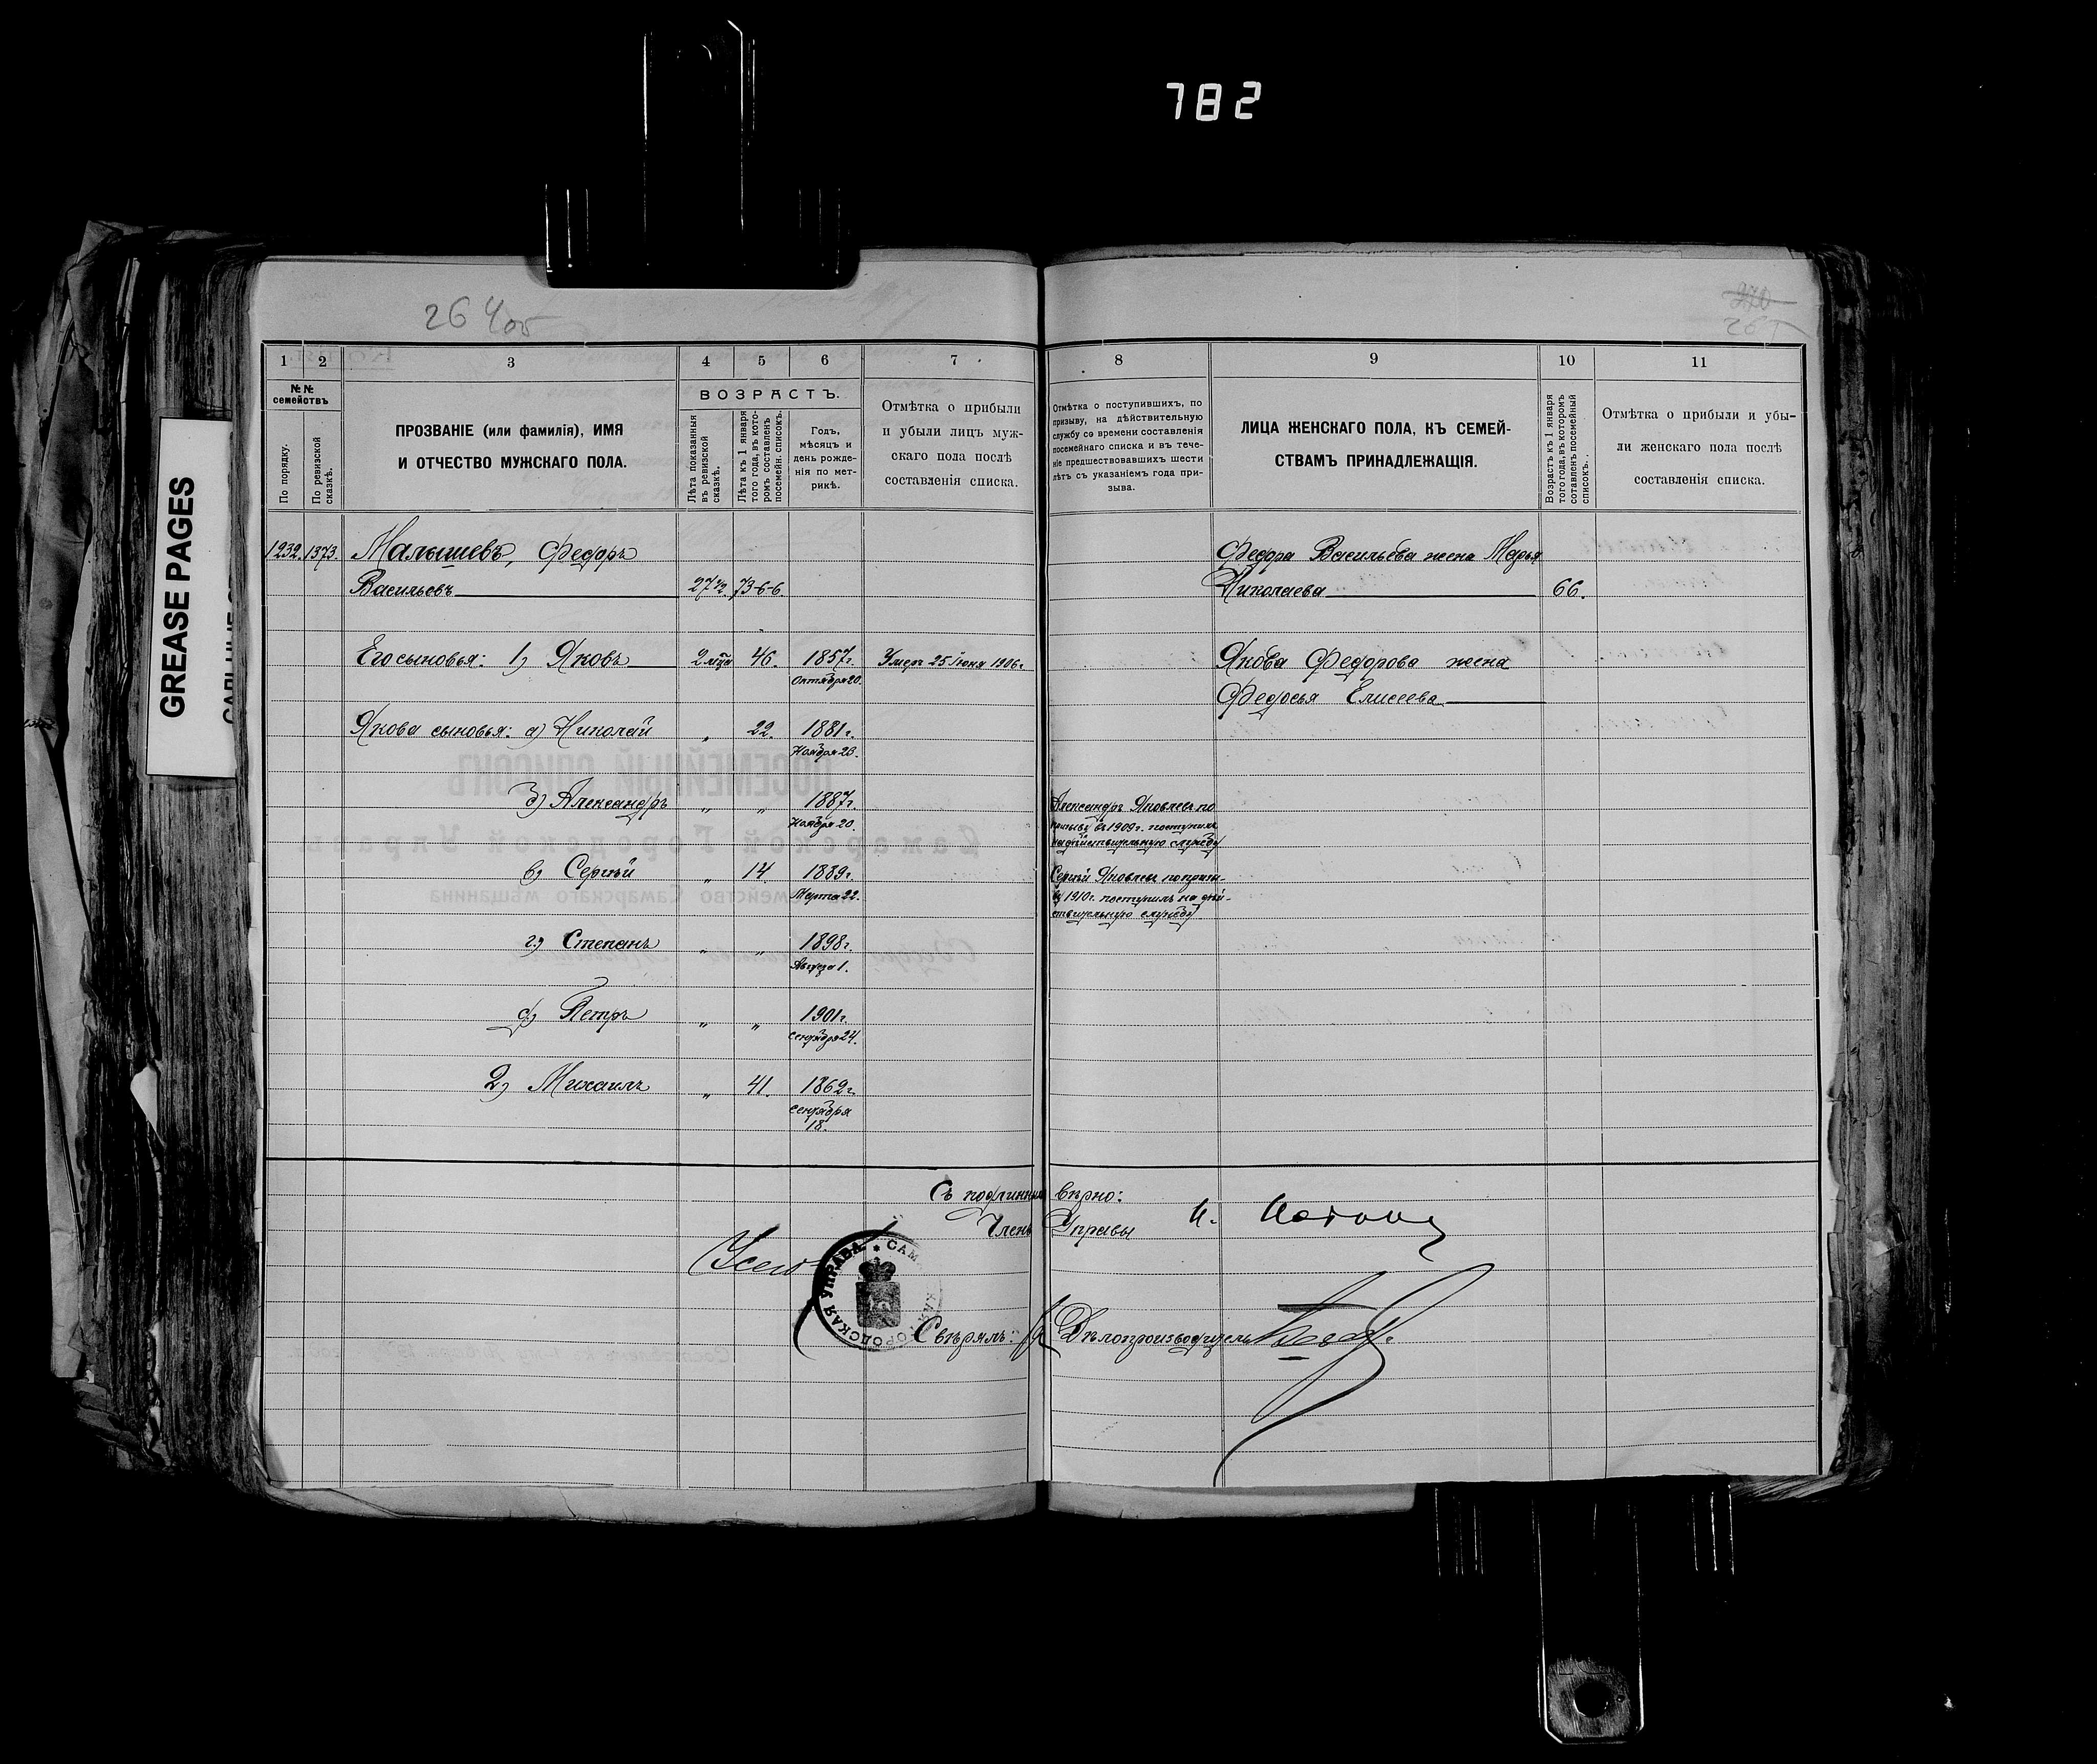 782
GREASE PAGES
26 4 об
270
1 2 3 4 5 6 7 8 9 10 11
№ № семействъ
По порядку.
По ревизской сказкѣ.
ПРОЗВАНІЕ (или фамилія), ИМЯ
И ОТЧЕСТВО МУЖСКАГО ПОЛА.
ВОЗРАСТЪ.
Лѣта показанныя въ ревизской сказкѣ.
Лѣта къ 1 января того года, въ которомъ составленъ посемейн. списокъ.
Годъ,
мѣсяцъ и
день рожде-
нія по мет-
рикѣ.
Отмѣтка о прибыли
и убыли лицъ муж-
скаго пола послѣ
составленія списка.
Отмѣтка о поступившихъ, по
призыву, на дѣйствительную
службу со времени составленія
посемейнаго списка и въ тече-
ніе предшествовавшихъ шести
лѣтъ съ указаніемъ года при-
зыва.
ЛИЦА ЖЕНСКАГО ПОЛА, КЪ СЕМЕЙ-
СТВАМЪ ПРИНАДЛЕЖАЩІЯ.
Возрастъ къ 1 января
того года, въ которомъ
составленъ посемейный
списокъ.
Отмѣтка о прибыли и убы-
ли женскаго пола послѣ
составленія списка.
1232. 1373. Малышевъ, Федоръ
Васильевъ 27½ 73-6-6.
Федора Васильева жена Марья
Николаева 66.
Его сыновья: 1) Яковъ 2 мѣца 46. 1857 г. Умеръ 25 Іюня 1906 г.
Октября 20.
Якова Федорова жена
Федосья Елисеева
Якова сыновья: а) Николай " 22. 1881 г.
Ноября 23.
б) Александръ " " 1887 г.
Ноября 20.
Александръ Яковлевъ по
призыву въ 1909 г. поступилъ
на дѣйствительную службу
в) Сергѣй " 14 1889 г.
Марта 22.
Сергѣй Яковлевъ по призы-
ву 1910 г. поступилъ на дѣй-
ствительную службу
г) Степанъ " " 1898 г.
Августа 1.
д) Петръ " " 1901 г.
Сентября 24.
2) Михаилъ " 41. 1862 г.
Сентября
18.
Съ подлиннымъ вѣрно:
Членъ Управы
САМ КАЯ ГОРОДСКАЯ УПРАВА
Свѣрялъ: Дѣлопроизводитель